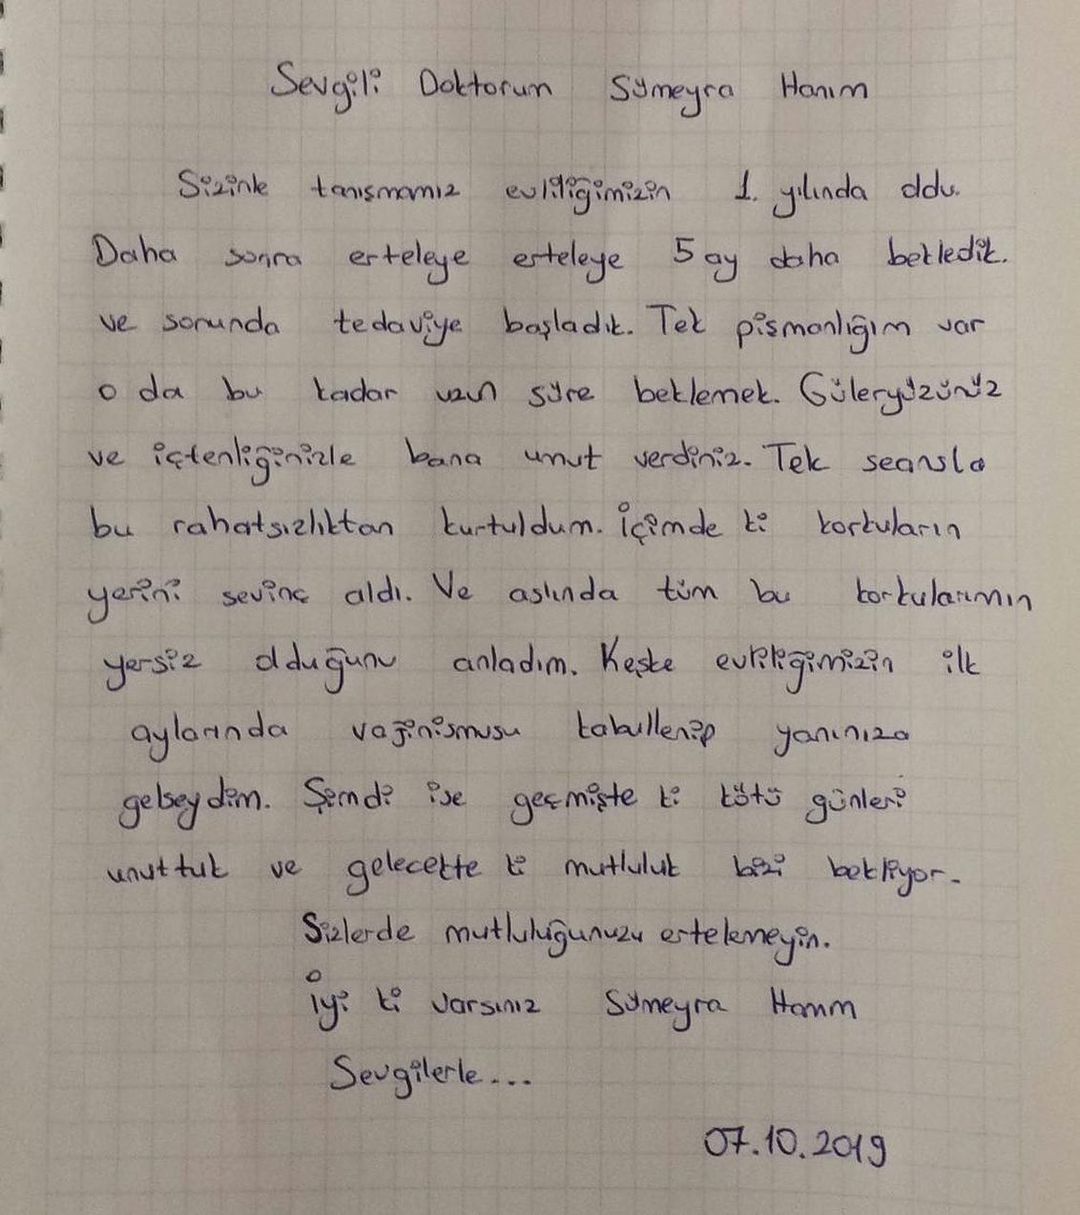 Sevgili Doktorum Sümeyra Hanım
Sizinle tanışmamız evliliğimizin 1. yılında oldu.
Daha sonra erteleye erteleye 5 ay daha bekledik.
ve sonunda tedaviye başladık. Tek pişmanlığım var
o da bu kadar uzun süre beklemek. Güleryüzünüz
ve içtenliğinizle bana umut verdiniz. Tek seansla
bu rahatsızlıktan kurtuldum. İçimde ki korkuların
yerini sevinç aldı. Ve aslında tüm bu korkularımın
yersiz olduğunu anladım. Keşke evliliğimizin ilk
aylarında vajinismusu kabullenip yanınıza
gelseydim. Şimdi ise geçmişte ki kötü günleri
unuttuk ve gelecekte ki mutluluk bizi bekliyor.
Sizlerde mutluluğunuzu ertelemeyin.
İyi ki varsınız Sümeyra Hanım
Sevgilerle...
07.10.2019